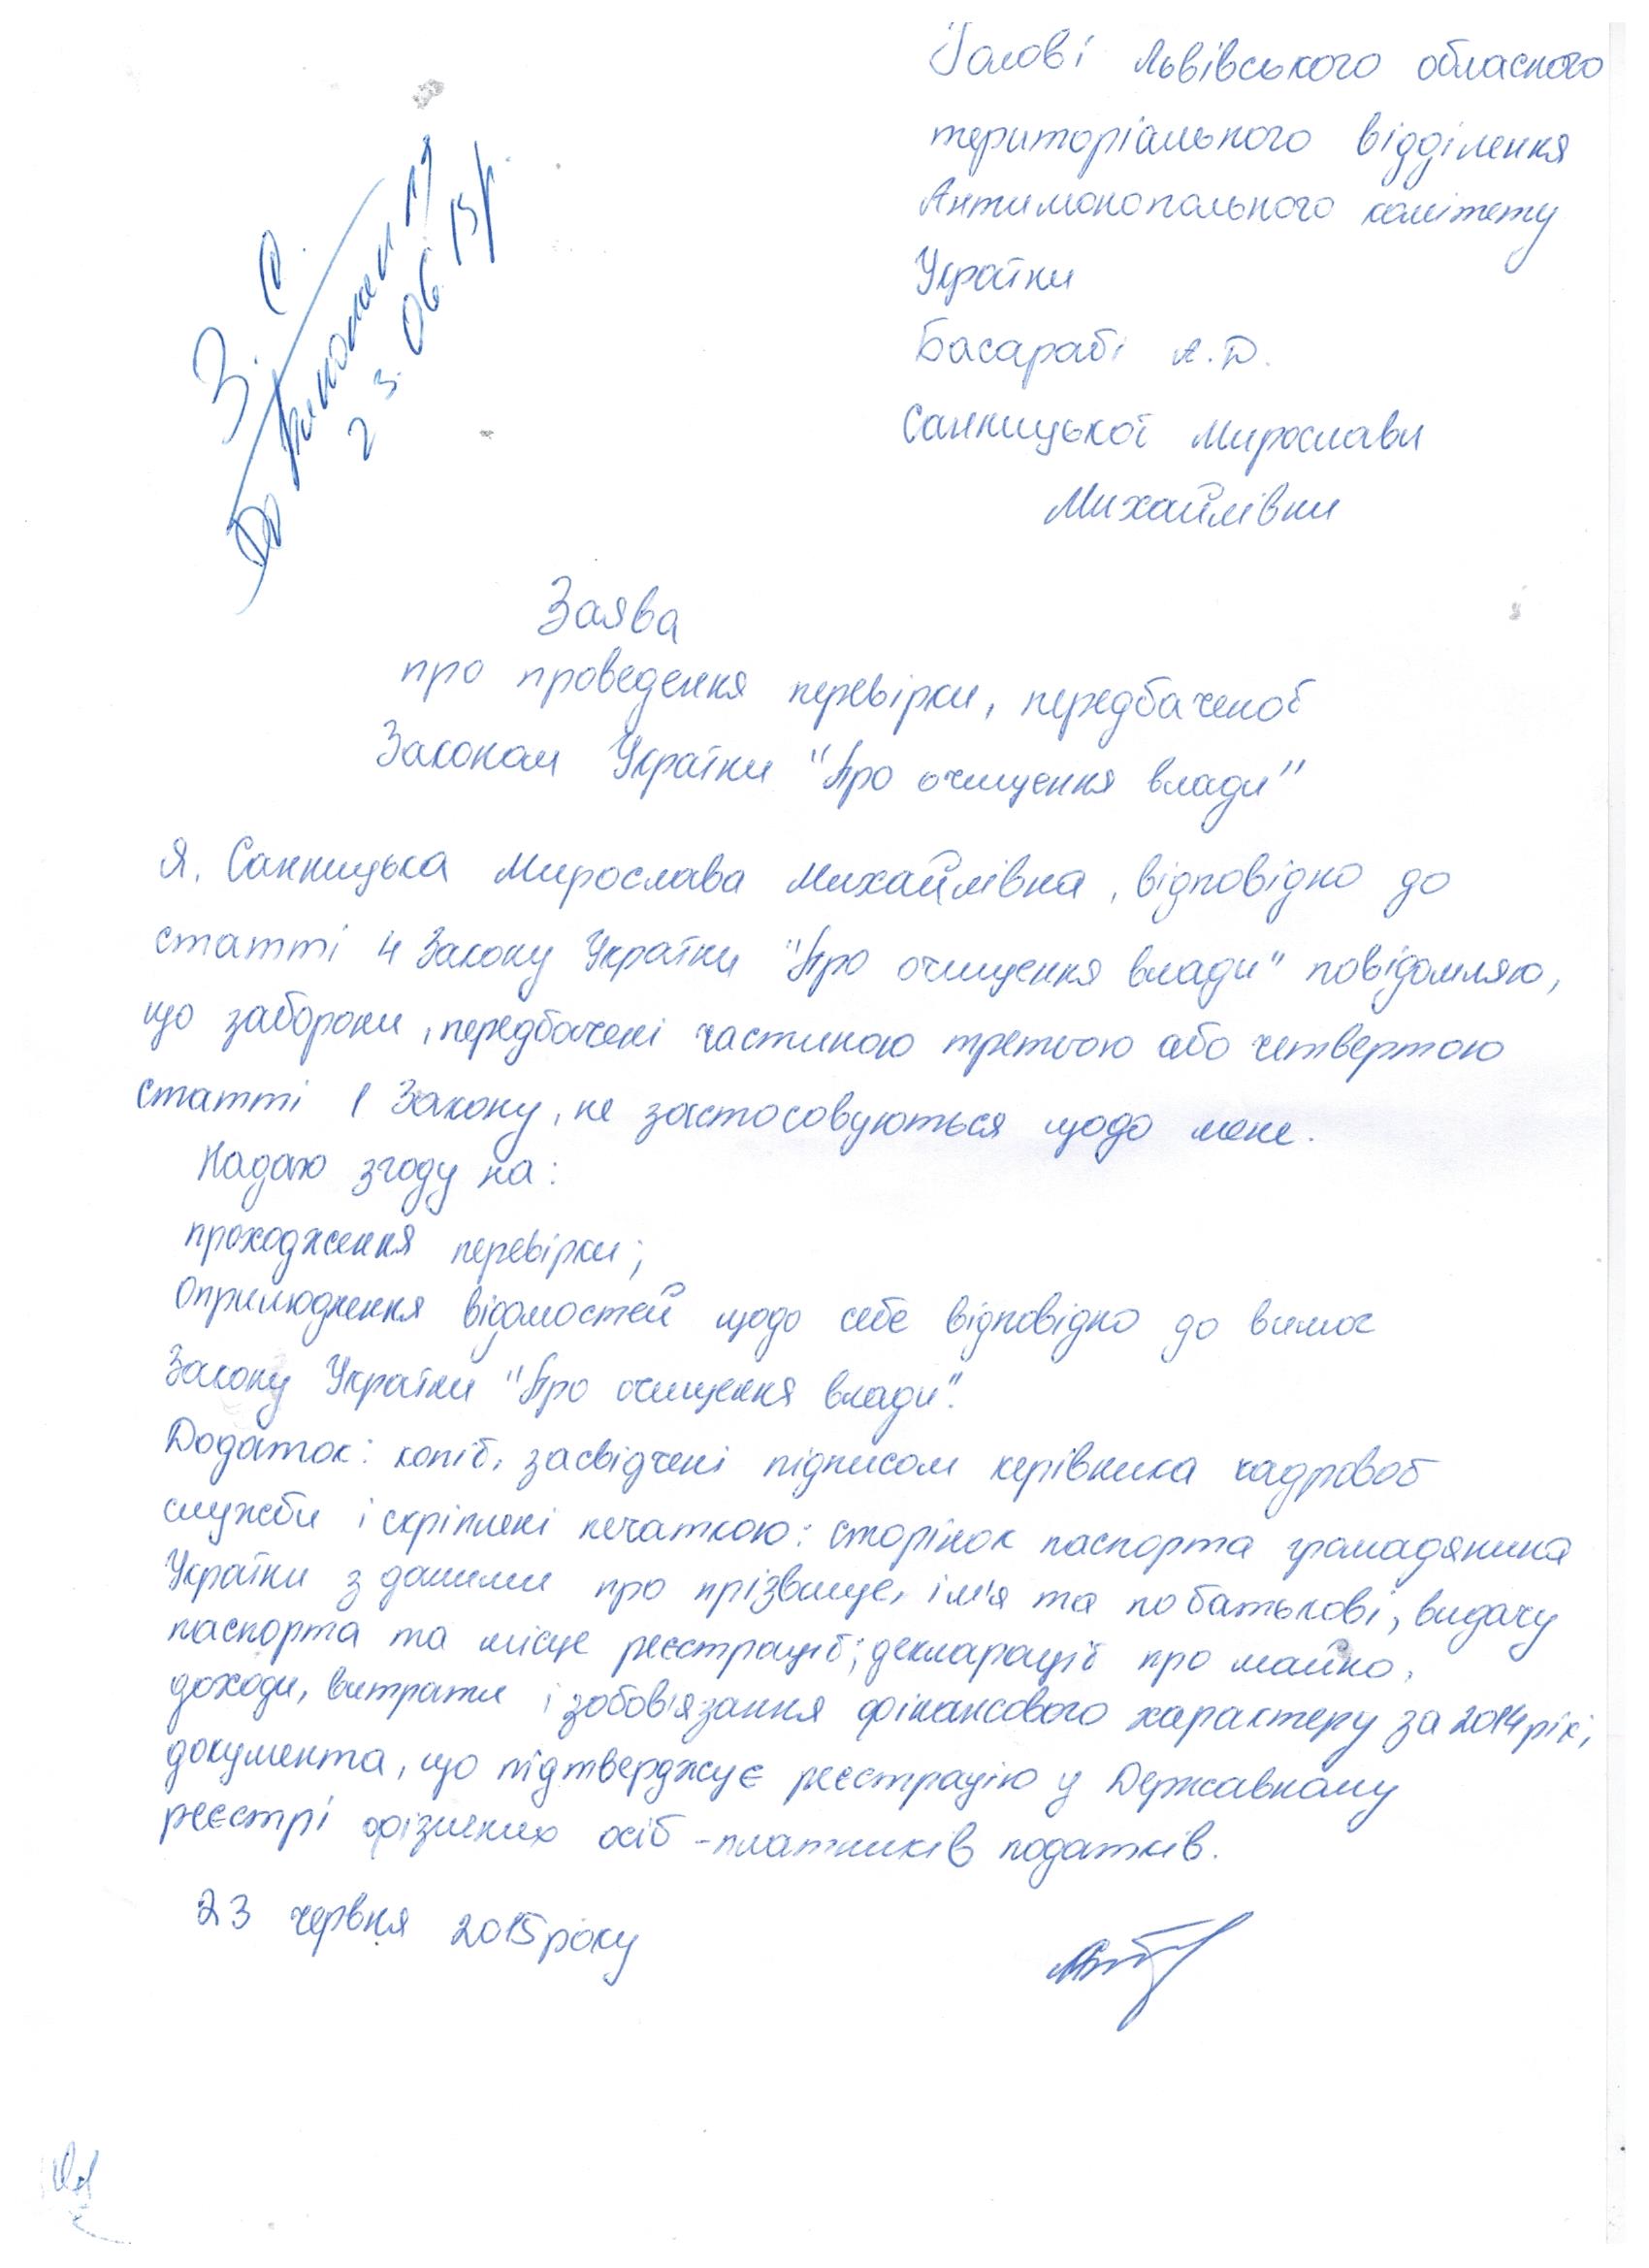 Голові Львівського обласного
територіального відділення
Антимонопольного комітету
України
Басарабі Л.Д.
Санницької Мирослави
Михайлівни
З. О.
До виконання
23.06.15р.
Заява
про проведення перевірки, передбаченої
Законом України "Про очищення влади"
Я, Санницька Мирослава Михайлівна, відповідно до
статті 4 Закону України "Про очищення влади" повідомляю,
що заборони, передбачені частиною третьою або четвертою
статті 1 Закону, не застосовуються щодо мене.
Надаю згоду на:
проходження перевірки;
оприлюднення відомостей щодо себе відповідно до вимог
Закону України "Про очищення влади".
Додаток: копії, засвідчені підписом керівника кадрової
служби і скріплені печаткою: сторінок паспорта громадянина
України з даними про прізвище, ім'я та по батькові, видачу
паспорта та місце реєстрації; декларації про майно,
доходи, витрати і зобов'язання фінансового характеру за 2014 рік;
документа, що підтверджує реєстрацію у Державному
реєстрі фізичних осіб -платників податків.
23 червня 2015 року